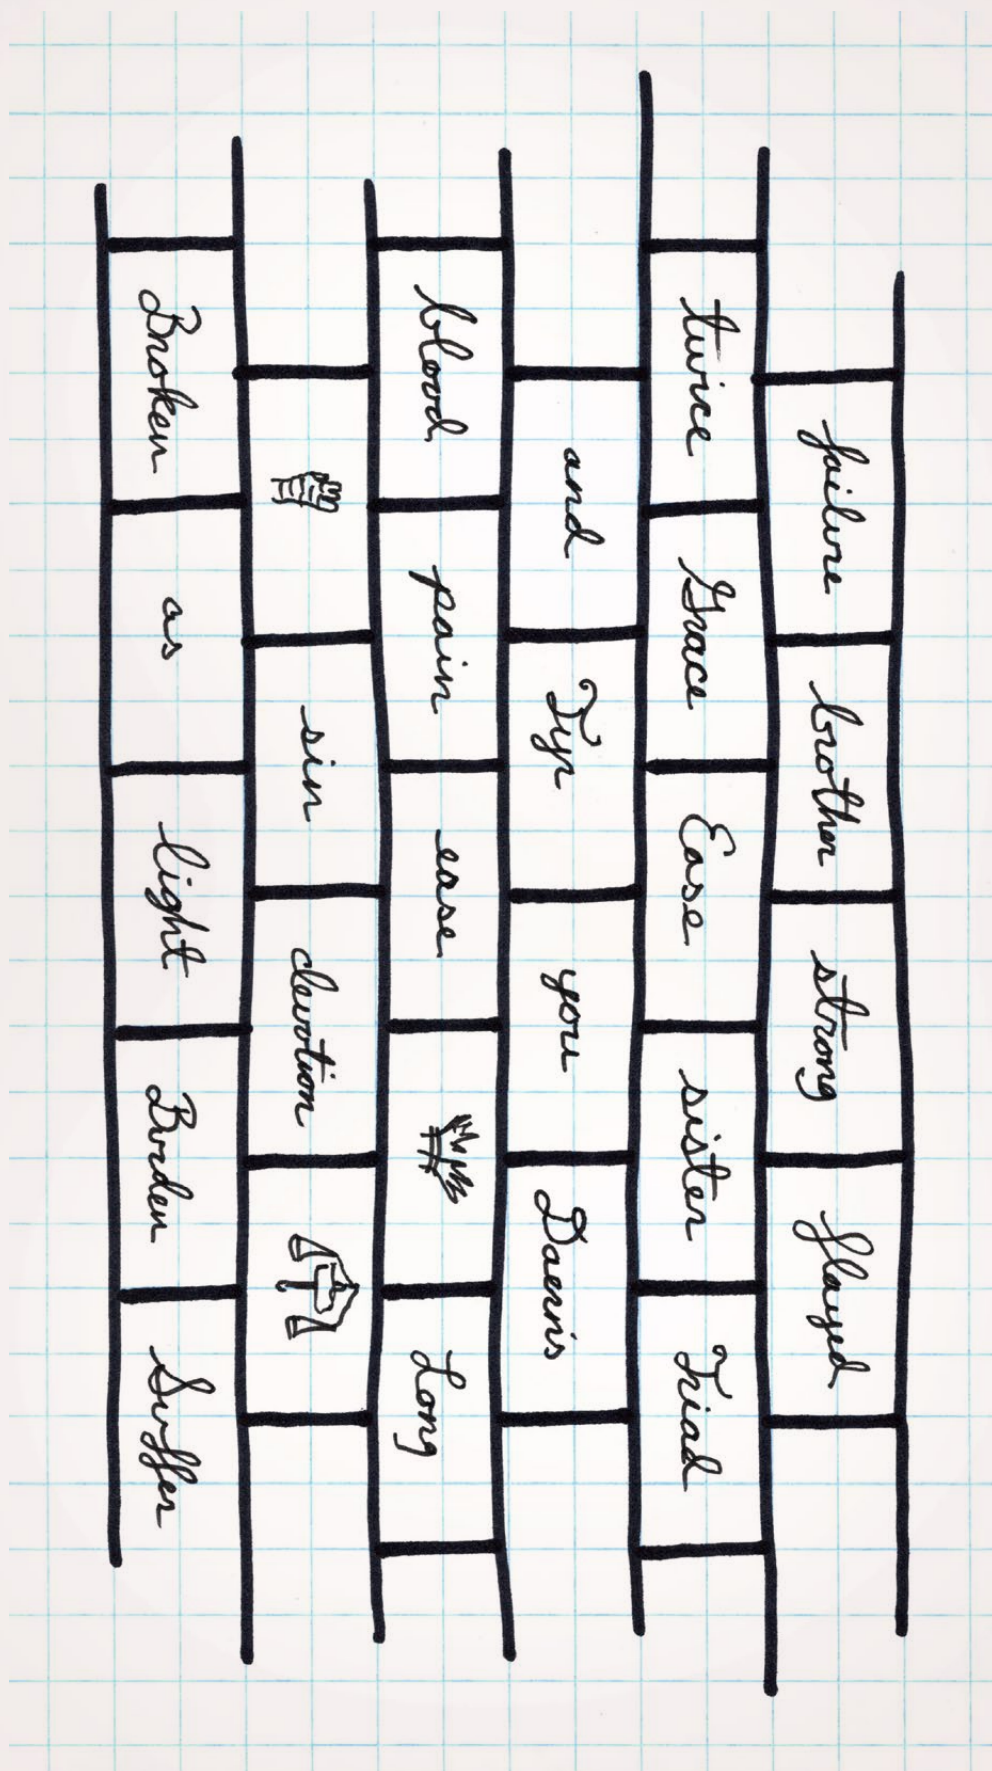 failure brother strong flayed
twice Grace Ease sister Triad
and Tyr you
blood pain ease Long
sin devotion
Broken as light Burden Suffer